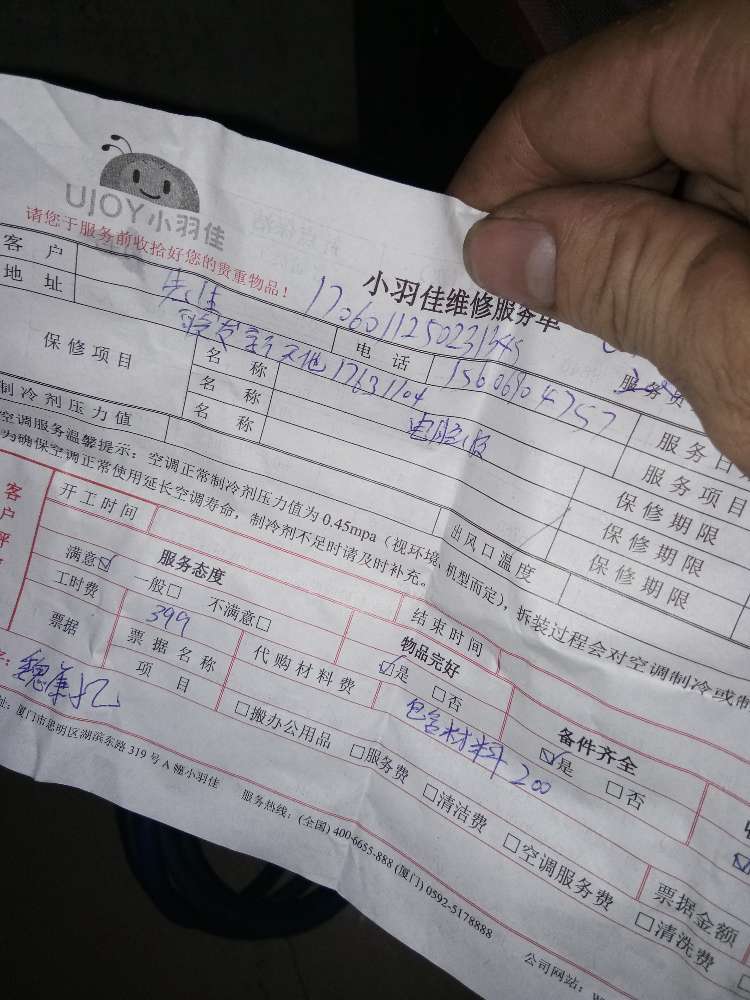 UJOY小羽佳
请您于服务前收拾好您的贵重物品！
小羽佳维修服务单
客户 先生 电话 15606904757
地址 17631104
服务日
保修项目 名称 电脑板 服务项目
名称 保修期限
名称 保修期限
制冷剂压力值 出风口温度 保修期限
空调服务温馨提示：空调正常制冷剂压力值为0.45mpa（视环境、机型而定），拆装过程会对空调制冷或制
为确保空调正常使用延长空调寿命，制冷剂不足时请及时补充。
开工时间 结束时间
服务态度 物品完好 备件齐全
满意☑ 一般□ 不满意□ ☑是 □否 ☑是 □否
工时费 399 代购材料费 包含材料200
票据 票据名称 票据金额
项目 □搬办公用品 □服务费 □清洁费 □空调服务费 □清洗费
址：厦门市思明区湖滨东路319号A幢小羽佳 服务热线：(全国) 400-6655-888 (厦门) 0592-5178888 公司网站：W